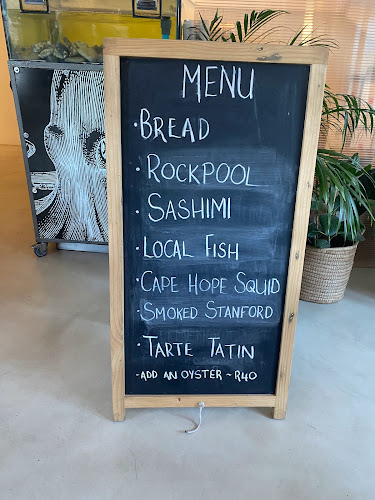 MENU
·BREAD
·ROCKPOOL
·SASHIMI
·LOCAL FISH
·CAPE HOPE SQUID
·SMOKED STANFORD
·TARTE TATIN
-ADD AN OYSTER ~ R40